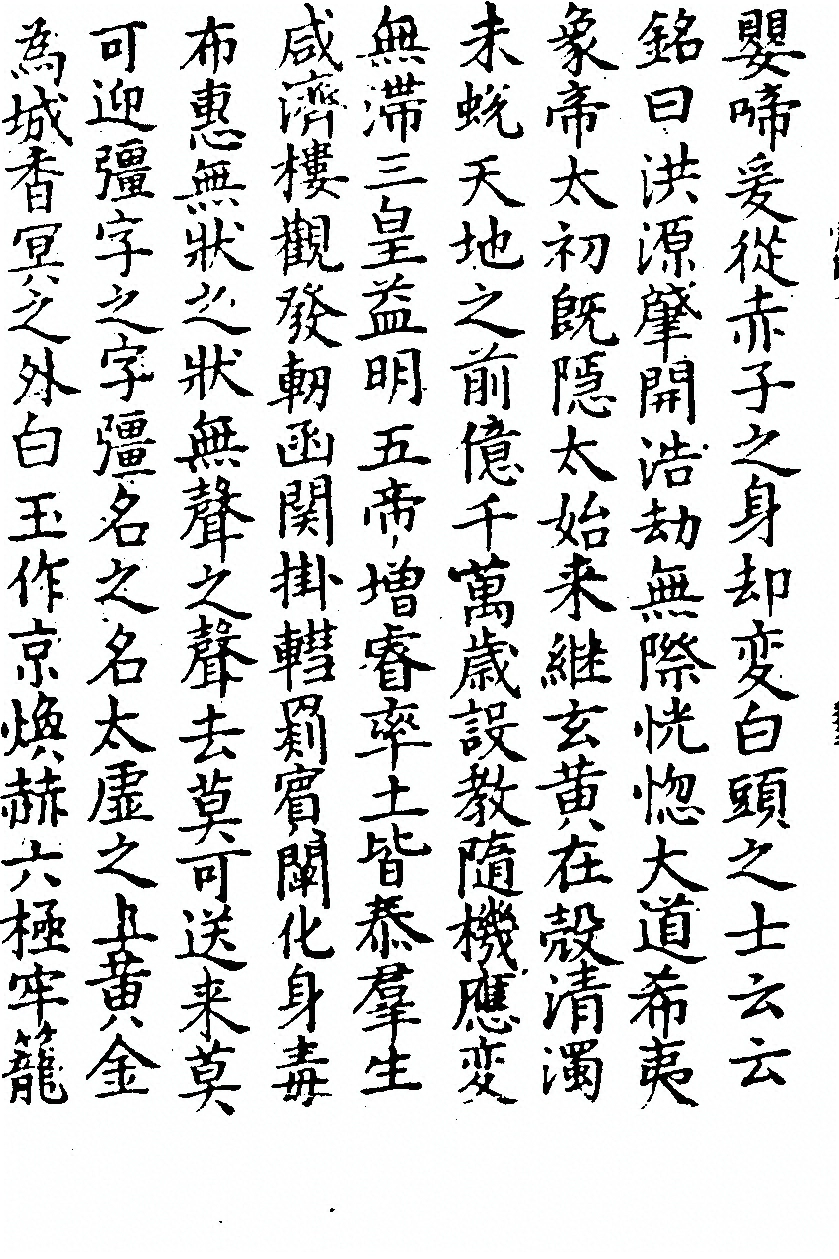 嬰啼爰從赤子之身却変白頭之士云云
銘曰洪源肇開浩劫無際恍惚大道希夷
象帝太初既隱太始来継玄黄在殻清濁
未蛻天地之前億千萬歳設教随機應変
無滞三皇益明五帝增睿率土皆恭羣生
咸濟樓觀發軔函関掛轊罽賓闡化身毒
布惠無狀之狀無聲之聲去莫可送来莫
可迎彊字之字彊名之名太虛之上黄金
為城香冥之外白玉作京煥赫六極牢籠